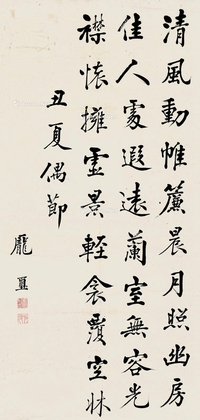 清風動帷簾晨月照幽房
佳人處遐遠蘭室無容光
襟懷擁靈景輕衾覆空牀
丑夏偶節
龐璽